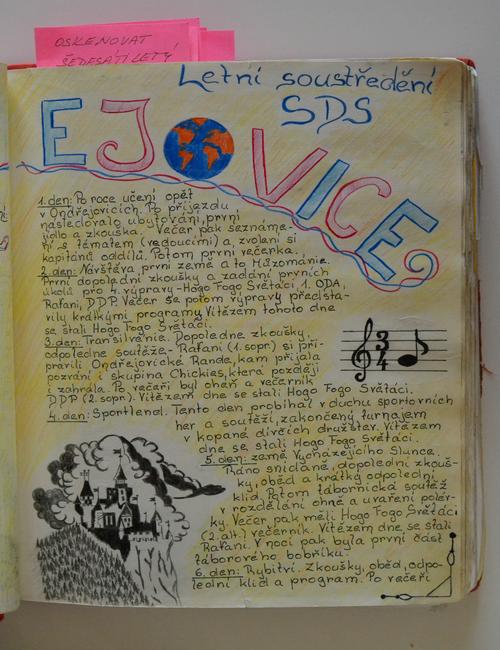 OSKENOVAT
ŠEDESÁTILETÝ
Letní soustředění
SDS
EJOVICE
1. den: Po roce učení opět
v Ondřejovicích. Po příjezdu
následovalo ubytování, první
jídlo a zkouška. Večer pak seznáme-
ní s tématem (vedoucími) a zvolení si
kapitánů oddílů. Potom první večerka.
2. den: Návštěva první země a to Můzománie.
První dopolední zkoušky a zadání prvních
úkolů pro 4. výpravy - Hogo Fogo Světáci, 1. ODA,
Rafani, DDP. Večer se potom výpravy předsta-
vily krátkými programy. Vítězem tohoto dne
se stali Hogo Fogo Světáci.
3. den: Transilvánie. Dopoledne zkoušky,
odpoledne soutěže - Rafani (1. sopr) si při-
pravili Ondřejovické Rande, kam přijala
pozvání i skupina Chickies, která později
i zahrála. Po večeři byl oheň a večerník
DDP (2. sopr). Vítězem dne se stali Hogo Fogo Světáci.
4. den: Sportlend. Tento den probíhal v duchu sportovních
her a soutěží, zakončený turnajem
v kopané dívčích družstev. Vítězem
dne se stali Hogo Fogo Světáci.
5. den: země Vycházejícího Slunce.
Ráno snídaně, dopolední zkouš-
ky, oběd a krátký odpolední
klid. Potom tábornická soutěž
v rozdělání ohně a uvaření polév-
ky. Večer pak měli Hogo Fogo Světáci
(2. alt) večerník. Vítězem dne se stali
Rafani. V noci pak byla první část
táborového bobříku.
6. den: Rybitví. Zkoušky, oběd, odpo-
lední klid a program. Po večeři
3
4